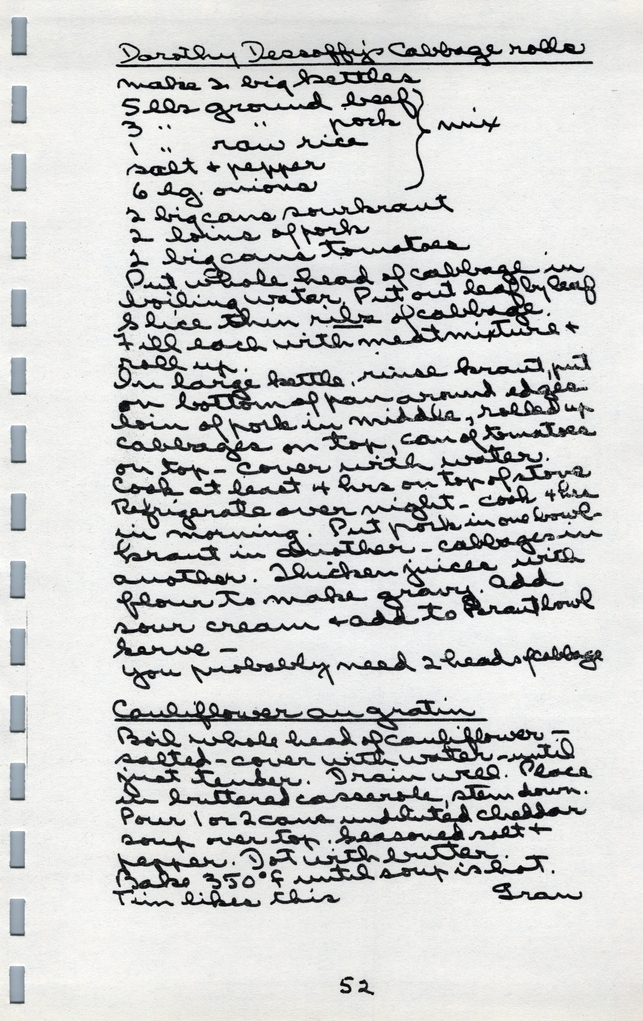 Dorothy Dessoffy's Cabbage rolls
make 2 big kettles
5 lbs ground beef
3 " " pork } mix
1 " raw rice
salt + pepper
6 lg. onions
2 big cans sourkraut
2 loins of pork
2 big cans tomatoes
Put whole head of cabbage in
boiling water. Put out leaf by leaf
Slice thin ribs of cabbage.
Fill each with meat mixture +
roll up.
In large kettle, rinse kraut, put
on bottom of pan around edges
loin of pork in middle, rolled up
cabbages on top, can of tomatoes
on top - cover with water.
Cook at least 4 hrs on top of stove
Refrigerate over night - cook 4 hrs
in morning. Put pork in one bowl -
kraut in another - cabbages in
another. Thicken juices with
flour to make gravy. add
sour cream + add to kraut bowl
Serve -
You probably need 2 heads of cabbage
Cauliflower au gratin
Boil whole head of cauliflower -
salted - cover with water - until
just tender. Drain well. Place
in buttered casserole, stem down.
Pour 1 or 2 cans undiluted cheddar
soup over top. Seasoned salt +
pepper. Dot with butter.
Bake 350°F until soup is hot.
Tim likes this Gran
52